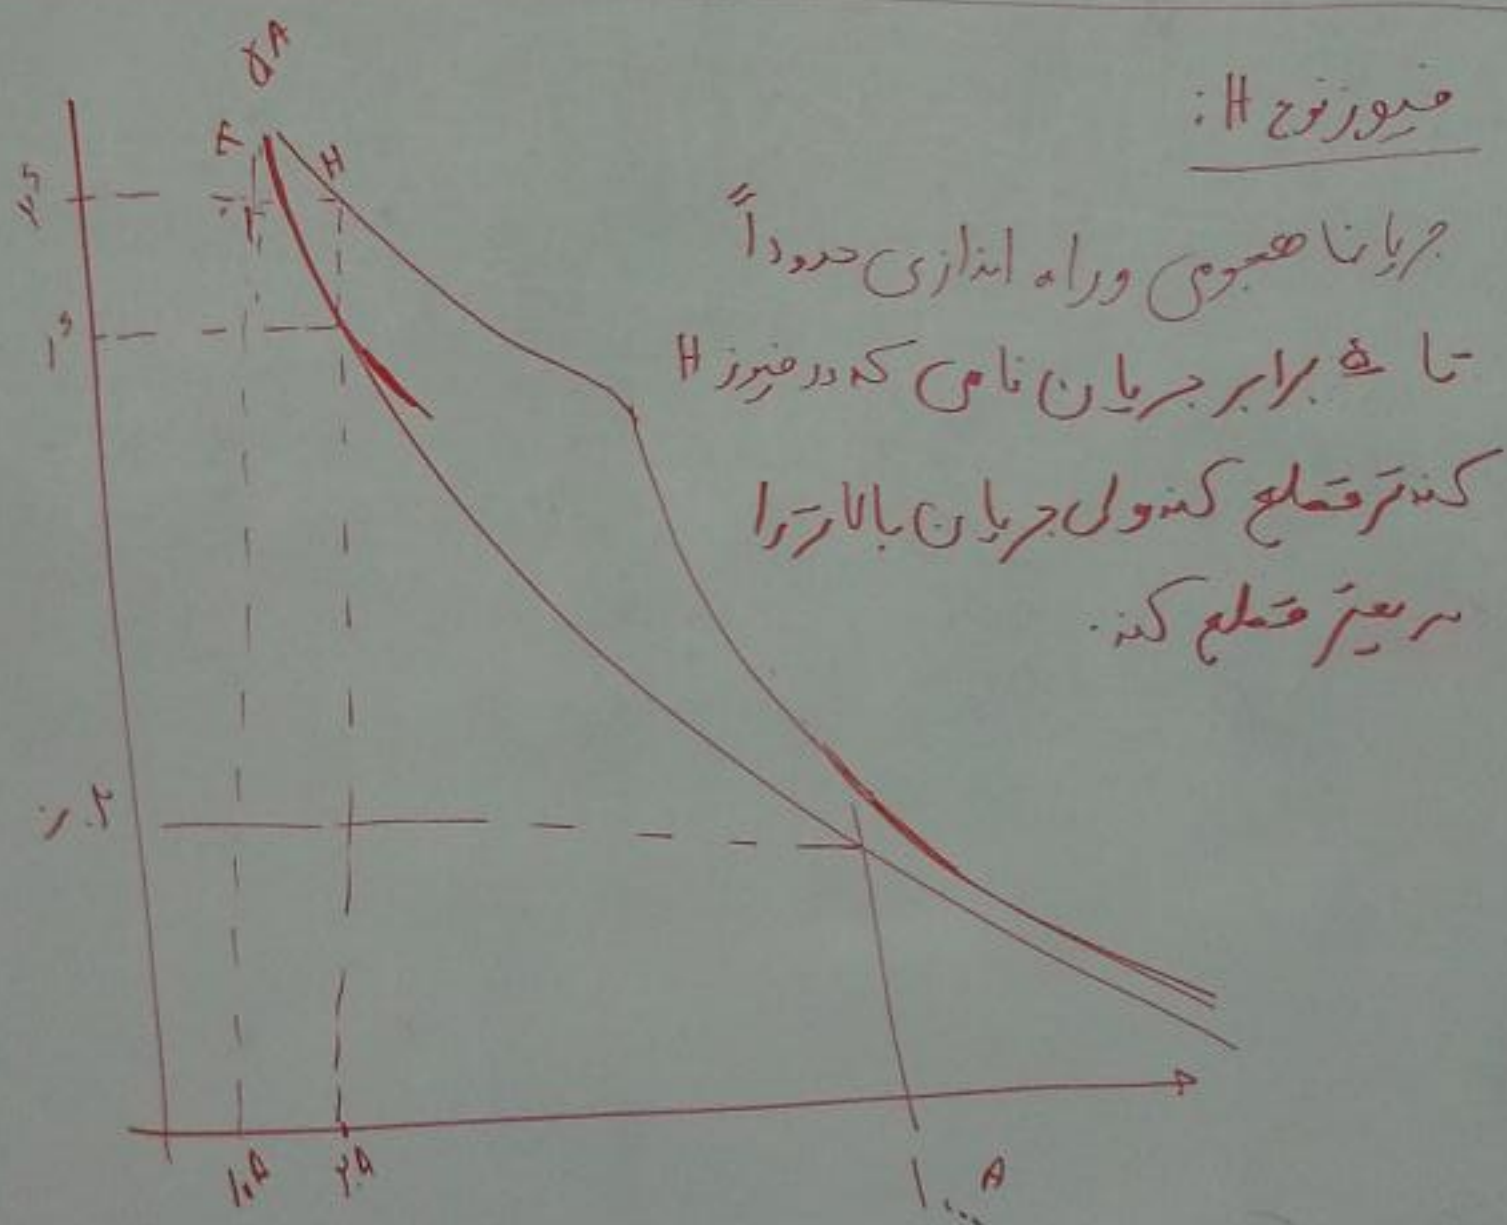 فیوز نوع H:
جریانا هجومی و راه اندازی حدوداً
تا ۵ برابر جریان نامی که در فیوز H
کندتر قطع کند ولی جریان بالاتر را
سریعتر قطع کند.
۵A
H
۲s
۱s
۱۰A
۲۰A
۱۰۰۰ A